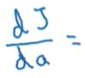 dJ/da =